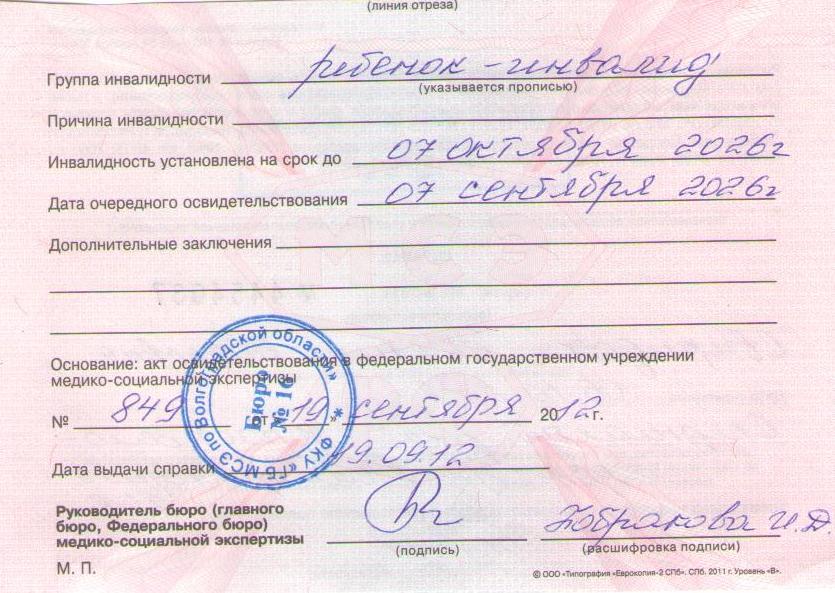 (линия отреза)
Группа инвалидности ребенок-инвалид
(указывается прописью)
Причина инвалидности
Инвалидность установлена на срок до 07 октября 2026г
Дата очередного освидетельствования 07 сентября 2026г
Дополнительные заключения
Основание: акт освидетельствования в федеральном государственном учреждении
медико-социальной экспертизы
№ 849 от «19» сентября 2012 г.
Дата выдачи справки 19.09.12
Руководитель бюро (главного
бюро, Федерального бюро)
медико-социальной экспертизы
(подпись)
И.Д.
(расшифровка подписи)
М. П.
© ООО «Типография «Еврокопия-2 СПб». СПб. 2011 г. Уровень «В».
ФКУ «ГБ МСЭ по Волгоградской области» *
Бюро
№ 10